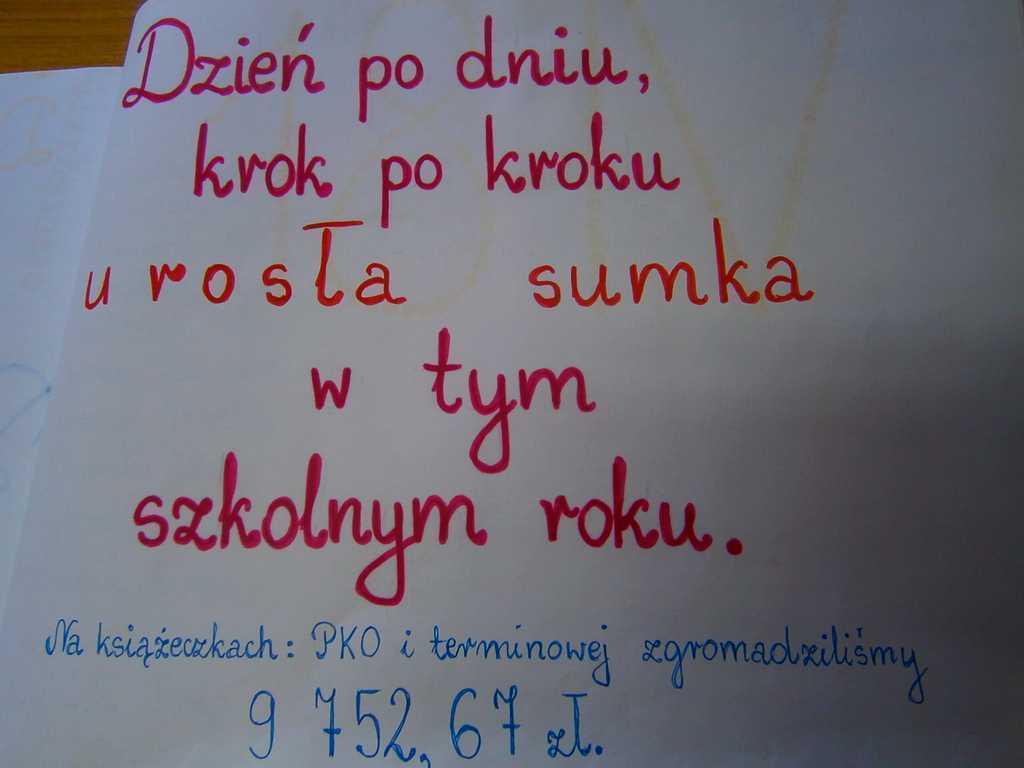 Dzień po dniu,
krok po kroku
urosła sumka
w tym
szkolnym roku.
Na książeczkach: PKO i terminowej zgromadziliśmy
9 752,67 zł.